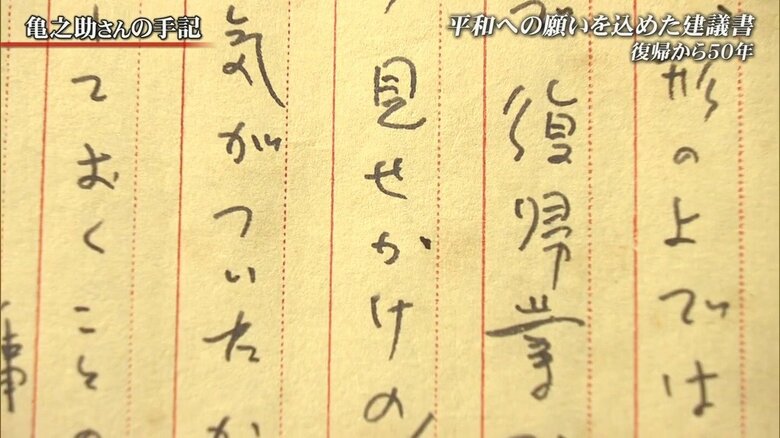 亀之助さんの手記
平和への願いを込めた建議書
復帰から50年
形の上では
復帰
見せかけの
気がついたか
ておくことの